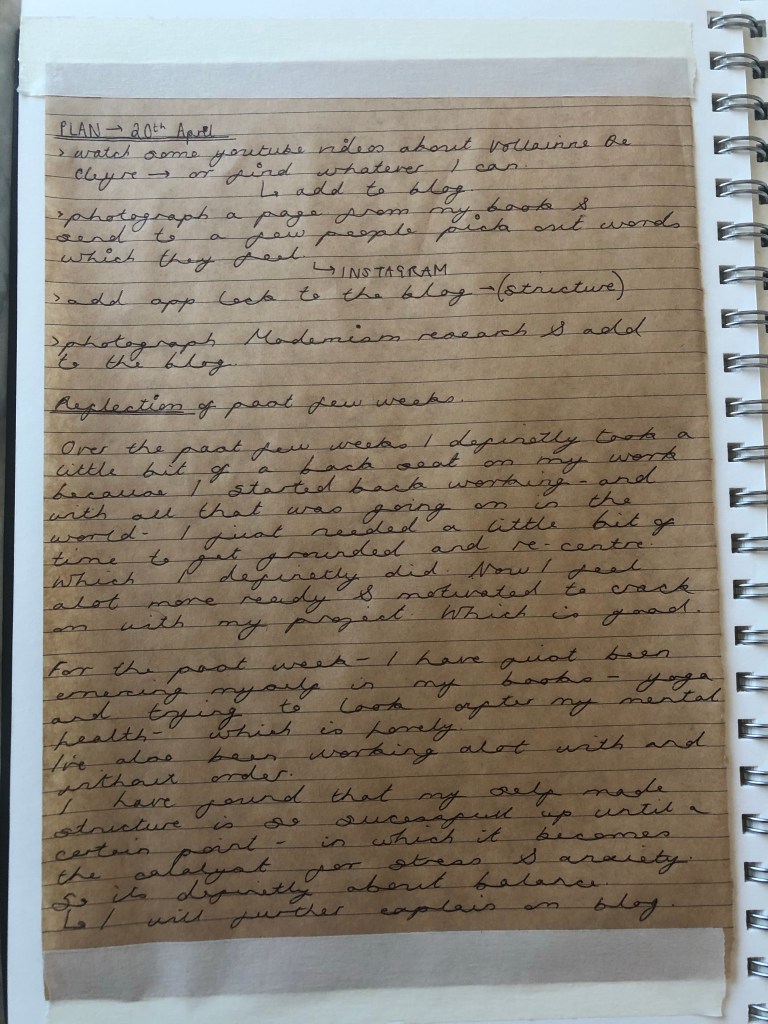 PLAN → 20th April
> watch some youtube videos about Voltairine De
Cleyre → or find whatever I can.
↳ add to blog.
> photograph a page from my book &
send to a few people pick out words
which they feel.
↳ INSTAGRAM
> add app lock to the blog → (structure)
> photograph Modernism research & add
to the blog.
Reflection of past few weeks.
Over the past few weeks I definetly took a
little bit of a back seat on my work
because I started back working - and
with all that was going on in the
world - I just needed a little bit of
time to get grounded and re-centre.
Which I definetly did. Now I feel
alot more ready & motivated to crack
on with my project. Which is good.
For the past week - I have just been
emercing myself in my books - yoga
and trying to look after my mental
health - which is lovely.
I've also been working alot with and
without order.
I have found that my self made
structure is so sucessfull up until a
certain point - in which it becomes
the catalyst for stress & anxiety.
So its definetly about balance.
↳ I will further explain on blog.